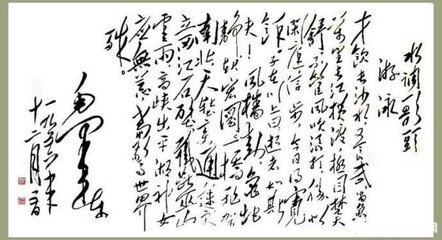 水调歌头
游泳
才饮长沙水又食武昌魚
萬里长江横渡极目楚天
舒不管风吹浪打胜似
闲庭信步今日得宽
馀子在川上曰逝者如斯
夫风樯动龟蛇
静起宏图一桥飞架
南北天堑变通途更
立西江石壁截断巫山
雲雨高峡出平湖神女
应無恙当惊世界
殊
毛泽东
一九五六年
十二月五日